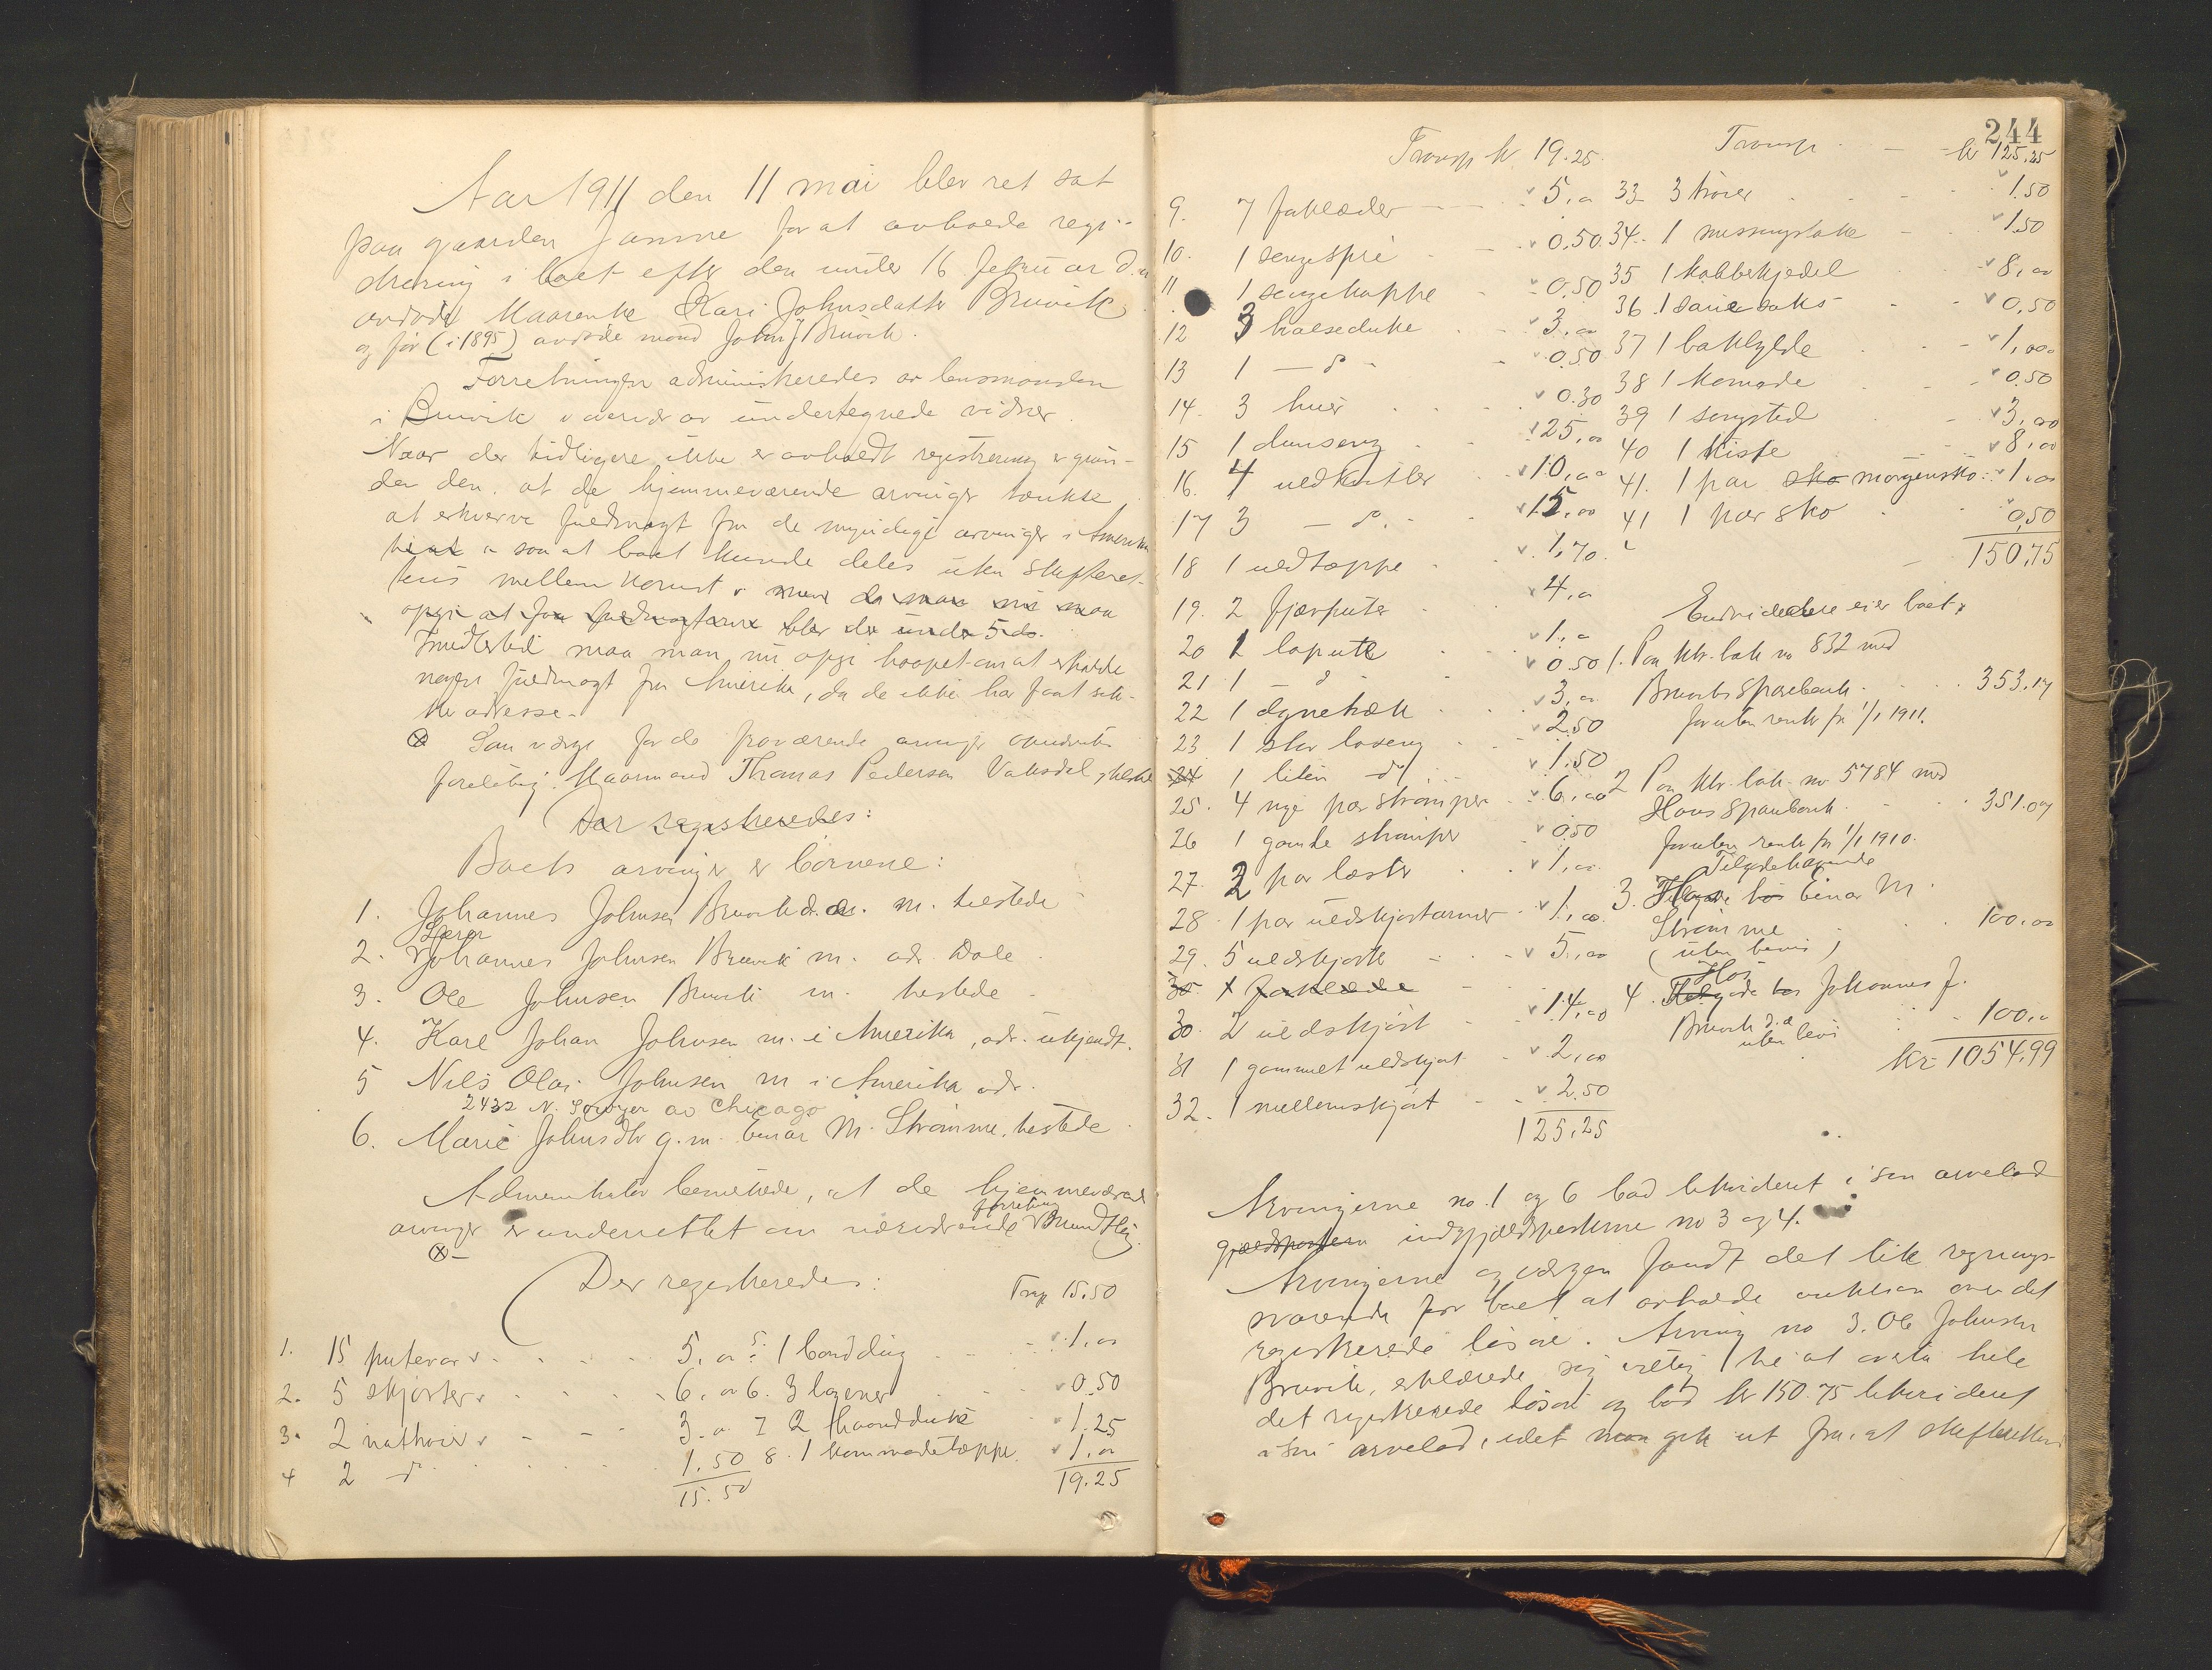 Aar 1911 den 11 mai blev ret sat
paa gaarden Jamne for at avholde regi-
strering i boet efter den under 16 februar d.a
avdøde kaarenke Kari Johnsdatter Bruvik
og før (i 1895) avdøde mand John J Bruvik.
Forretningen administreredes av lensmanden
i Bruvik i nærvær av undertegnede vidner.
Naar der tidligere ikke er avholdt registrering er grun-
den den, at de hjemmeværende arvinger tænkte
at erhverve fuldmagt fra de myndige arvinger i Amerika
saa at boet kunde deles uten skifteret-
tens mellemkomst men da man nu maa
opgi at faa fuldmagterne blev der under 5 ds.
Imidlertid maa man nu opgi haapet om at erholde
nogen fuldmagt fra Amerika, da de ikke har faat sik-
ker adresse.
Som værge for de fraværende arvinger opnævntes
foreløbig: Kaarmand Thomas Pedersen Vaksdal
Der registreredes:
Boets arvinger er børnene:
1. Johannes Johnsen Bruvik d.æ. m. tilstede
Lærer
2. Johannes Johnsen Bruvik m. adr. Dale
3. Ole Johnsen Bruvik m. tilstede
4. Karl Johan Johnsen m. i Amerika, adr. ukjendt.
5 Nils Olai Johnsen m i Amerika adr.
2432 N. Sawyer av Chicago
6. Marie Johnsdtr g.m. Einar M. Strømme, tilstede
Administrator bemerkede, at de hjemmeværende
forretning
arvinger er underrettet om nærværende
Der registreredes:
Trsp 15.50
1. 15 putevar 5,00 5. 1 borddug 1,00
2. 5 skjorter 6,00 6. 3 lagener 0.50
3. 2 nattrøier 3.00 7 2 haandduke 1.25
4 2 do 1.50 8. 1 kommodetæppe 1,00
15.50 19.25
244
Transp kr 19.25.
9. 7 faklæder 5,00
10. 1 sengespri 0.50
11 1 sengekappe 0.50
12 3 halseduke 3,00
13 1 - do - 0.50
14. 3 huer 0.30
15 1 dunseng 25,00
16. 4 uldkitler 10,00
17 3 - do. - 15,00
18 1 uldtæppe 1,70
19. 2 fjærputer 4,00
20 1 lopute 1,00
21 1 - do 0.50
22 1 dynetræk 3,00
23 1 stor loseng 2.50
24 1 liten do 1.50
25. 4 nye par strømper 6,00
26 1 gamle strømper 0.50
27. 2 par læster 1,00
28. 1 par uldskjortærmer 1,00
29. 5 uldskjorte 5,00
30 1 faklæde
30. 2 uldskjørt 14,00
31 1 gammel uldskjørt 2,00
32. 1 mellemskjørt 2.50
125.25
Transp kr 125.25
33 3 trøier 1.50
34. 1 messingstake 1.50
35 1 kobberkjedel 8,00
36. 1 sauesaks 0.50
37 1 bakhylde 1,00
38 1 komode 0.50
39 1 sengsted 3,00
40 1 kiste 8,00
41. 1 par sko morgensko 1,00
41 1 par sko 0,50
150.75
Endvidere eier boet:
1. Paa ktr. bok no 832 med
Bruviks Sparebank 353.17
foruten renter fra 1/1 1911.
2 Paa ktr. bok no 5784 med
Haus Sparebank 351.07
foruten renter fra 1/1 1910.
Tilgodehavende
3. hos Einar M.
Strømme 100.00
(uten bevis)
Hos
4. Tilgode hos Johannes J.
Bruvik d.æ 100.00
uten bevis
kr 1054.99
Arvingerne no. 1 og 6 bød likvideret i sin arvelod
gjældsposten indgjældsposterne no 3 og 4.
Arvingerne og værgen fandt det lite regnings-
svarende for boet at avholde auktion over det
registrerede løsøre. Arving no 3. Ole Johnsen
Bruvik, erklærede sig villig til at overta hele
det registrerede løsøre og bød kr 150.75 likvideret
i sin arvelod, idet man gik ut fra, at skifteretten